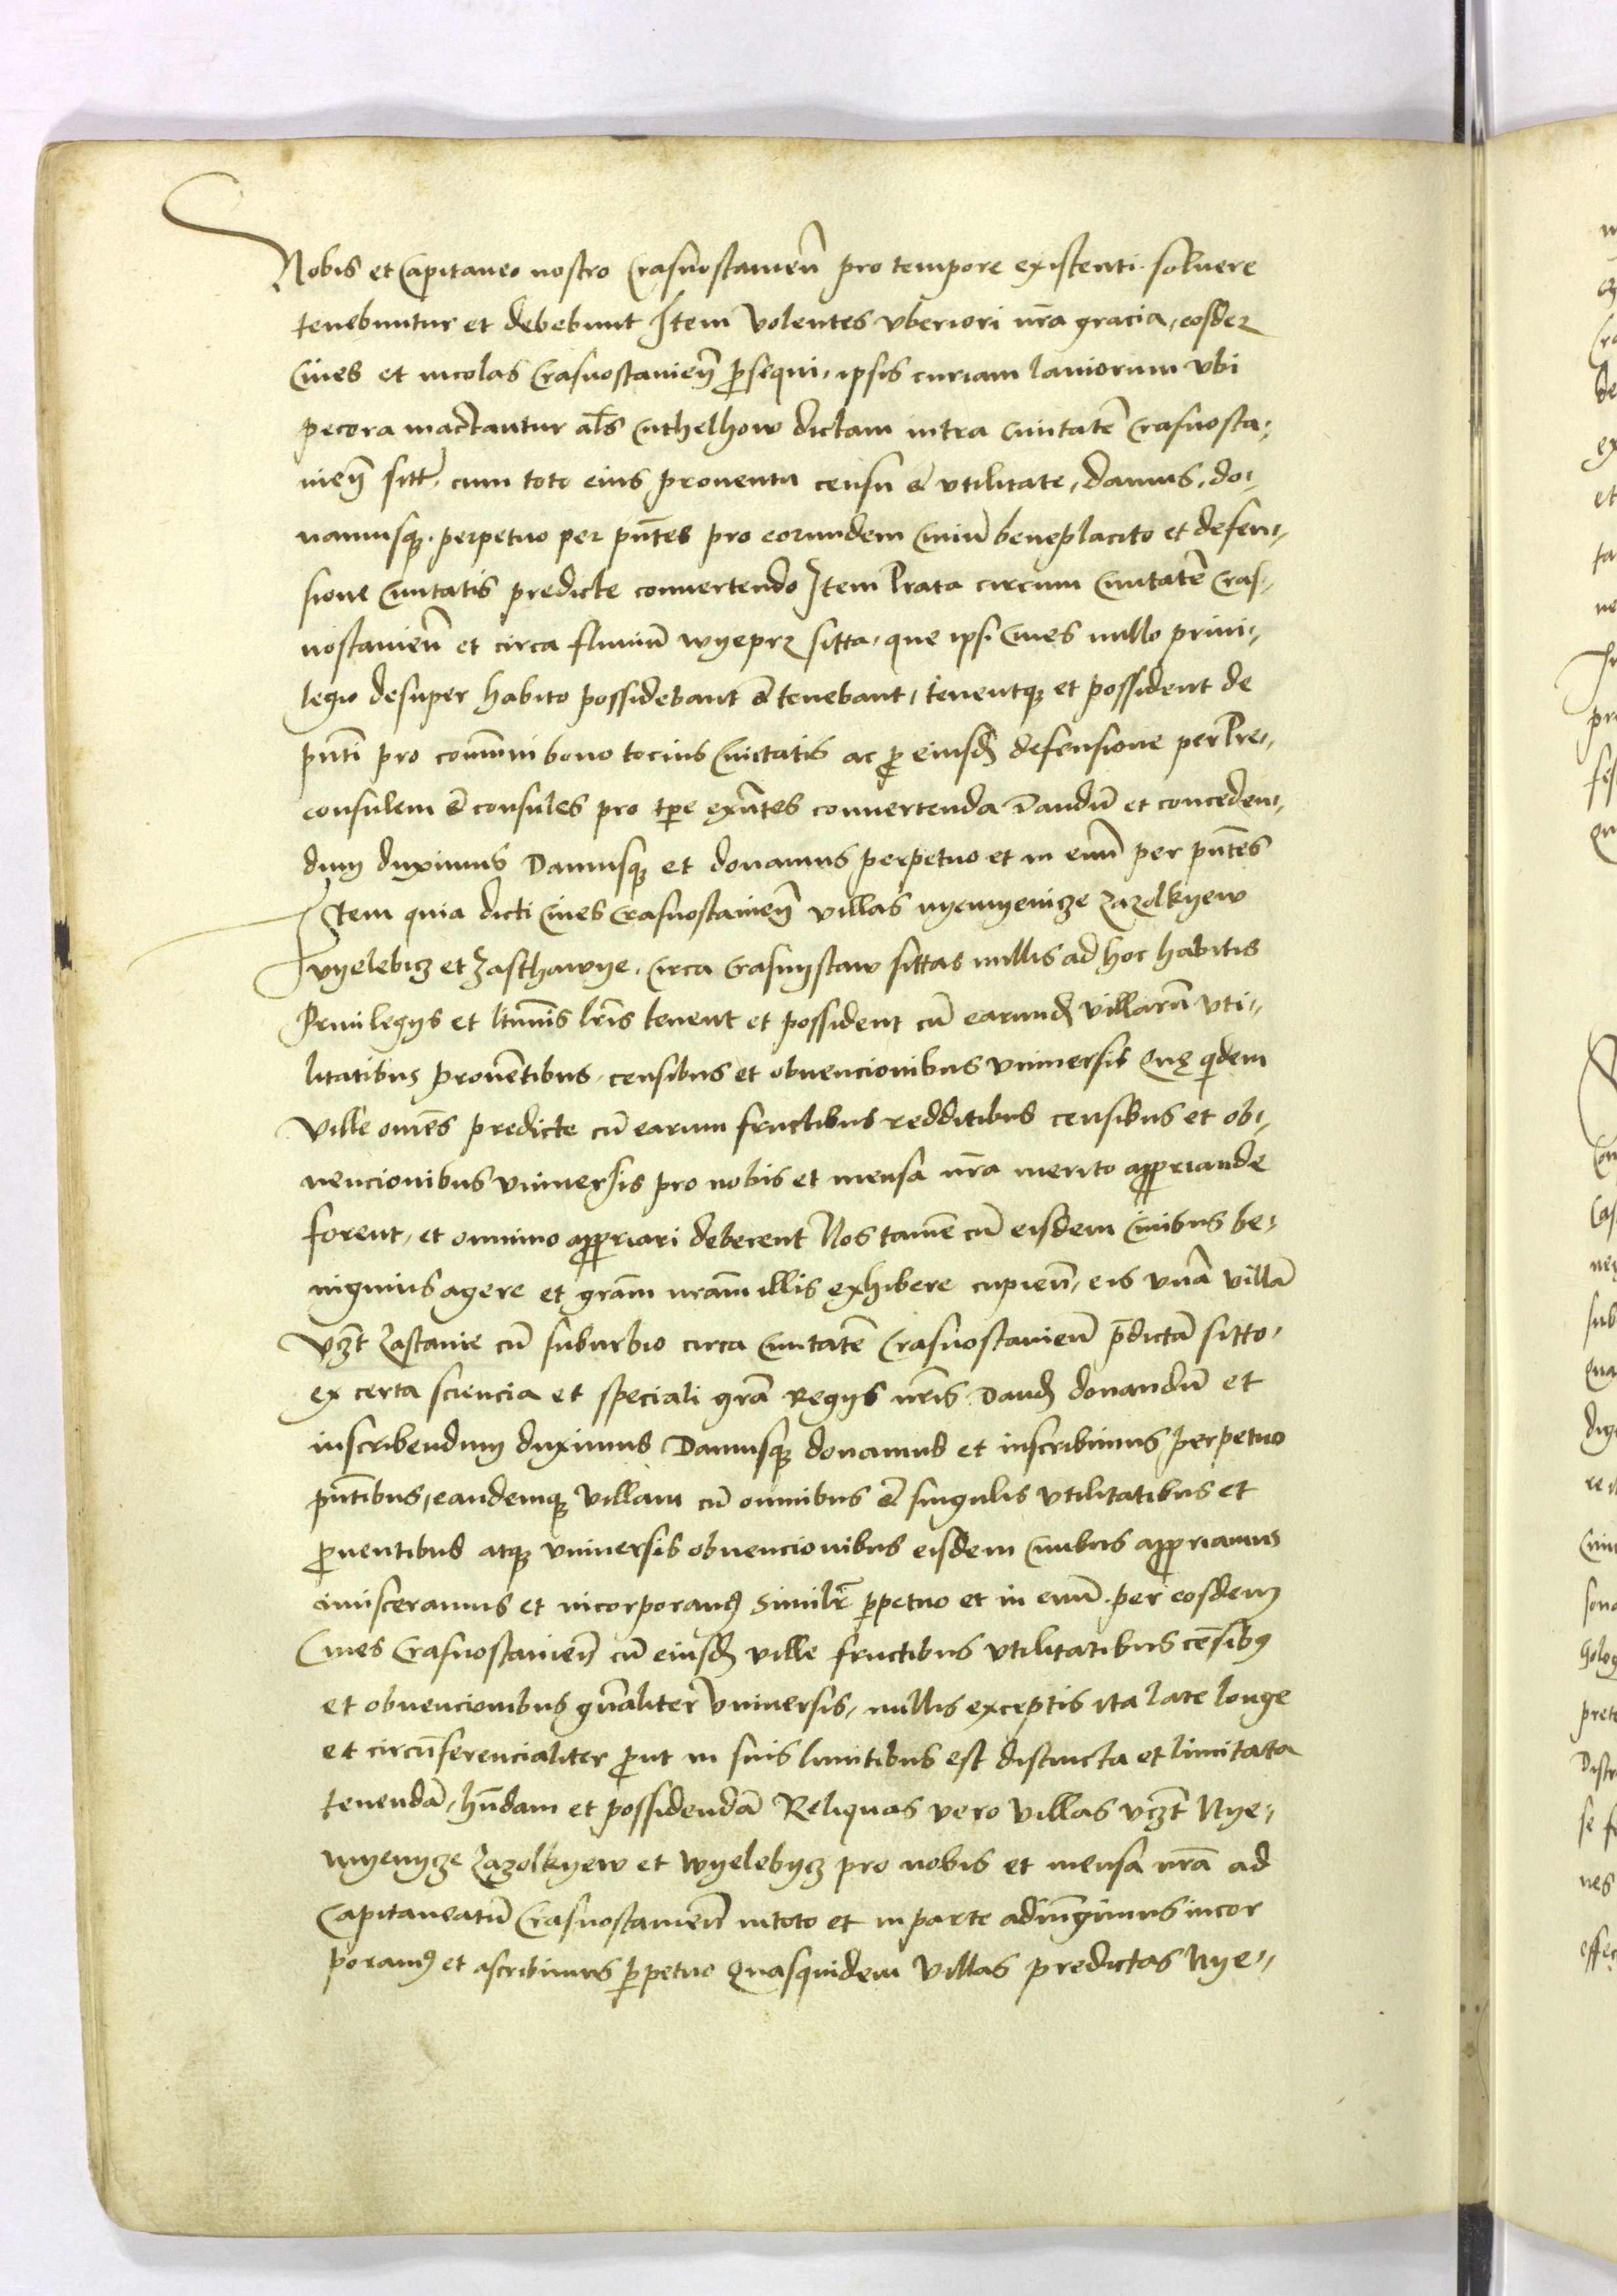 Nobis et Capitaneo nostro Crasnostavień pro tempore existenti. soluere
tenebuntur et debebunt Item Volentes vberiori nr̃a gracia, eosdez
Ciues et incolas Crasnostavień ꝓsequi, ipsis curiam laniorum vbi
pecora mactantur al̃s Cuthelhow dictam intra Ciuitatē Crasnosta-
vień sitt̃. cum toto eius prouentu censu & vtilitate, damus, do-
namusqꝫ. perpetuo per pñtes pro eorundem Ciuiū beneplacito et defen-
sione Ciuitatis predicte conuertendo Item Prata circum Ciuitatē Cras-
nostavień et circa fluuiū wyeprz sitta, que ipsi Ciues nullo priui-
legio desuper habito possidebant & tenebant, tenentqꝫ et possident de
pñti pro com̃uni bono tocius Ciuitatis ac ꝓ eiusđ defensione per Pre-
consulem & consules pro tꝑe exñtes conuertenda Dandū et conceden-
dum duximus Damusqꝫ et donamus perpetuo et in euū per pñtes
Item quia dicti Ciues Crasnostavień villas nyemyenicze zazolkyew
wyelebicz et Zasthawye. Circa Crasnystaw sittas nullis ad hoc habitis
Priuilegys et l̃timis l̃ris tenent et possident cū earunđ villarū vti-
litatibus prouētibus, censibus et obuencionibus vniuersis Quę qͥdem
Ville om̃es predicte cū earum fructibus redditibus censibus et ob-
uencionibus vniuersis pro nobis et mensa nr̃a merito approriande
forent, et omnino approriari deberent Nos tamē cū eisdem Ciuibus be-
nignius agere et grãm nrãm illis exhibere cupień, eis vnā villā
vcꝫt Zastawie cū suburbio circa Ciuitatē Crasnostavień p̄dictā sitto.
ex certa sciencia et speciali grã Regys nr̃is. Danđ donandū et
inscribendum duximus Damusqꝫ donamus et inscribimus perpetuo
pñtibus, eandemqꝫ villam cū omnibus & singulis vtilitatibus et
ꝓuentibus atqꝫ vniuersis obuencionibus eisdem Ciuibus appropriamus
inuisceramus et incorporamꝯ simil̃r ꝑpetuo et in euū. per eosdem
Ciues Crasnostavień cū eiusđ ville fructibus vtilitatibus cēsibꝯ
et obuencionibus gñaliter vniuersis, nullis exceptis ita late longe
et circūferencialiter ꝓut in suis limitibus est distincta et limitata
tenendā, hñdam et possidendā Reliquas vero villas vcꝫt Nye-
myenycze zazolkyew et wyelebycz pro nobis et mensa nr̃a ad
Capitaneatū Crasnostavień in toto et in parte adiūgimus incor
poramꝯ et ascribimus ꝑpetuo Quasquidem villas predictas Nye-